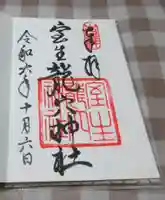 奉拝
室生龍穴神社
令和六年十月六日